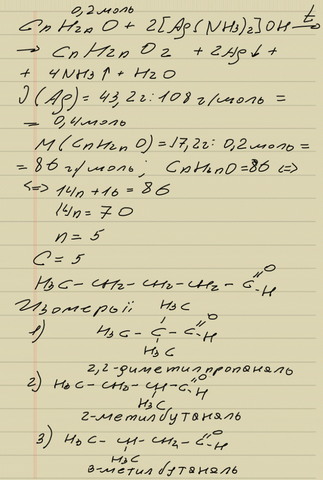 0,2 моль
CnH2nO + 2[Ag(NH3)2]OH t→
→ CnH2nO2 + 2Ag↓ +
+ 4NH3↑ + H2O
ϑ(Ag) = 43,2г : 108 г/моль =
= 0,4 моль
M(CnH2nO) = 17,2г : 0,2 моль =
= 86 г/моль; CnH2nO = 86 <=>
<=> 14n + 16 = 86
14n = 70
n = 5
C = 5
H3C – CH2 – CH2 – CH2 – C =O –H
Изомеры:
H3C
1) H3C – C – C =O –H
H3C
2,2-диметилпропаналь
2) H3C – CH2 – CH – C =O –H
H3C
2-метилбутаналь
3) H3C – CH – CH2 – C =O –H
H3C
3-метилбутаналь